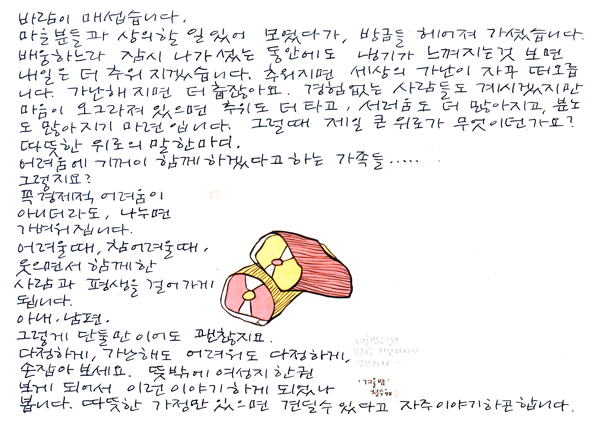 바람이 매섭습니다.
마을분들과 상의할 일 있어 모였다가, 방금들 헤어져 가셨습니다.
배웅하느라 잠시 나가 섰는 동안에도 냉기가 느껴지는것 보면
내일은 더 추워 지겠습니다. 추워지면 세상의 가난이 자꾸 떠오릅
니다. 가난해지면 더 춥잖아요. 경험없는 사람들도 계시겠지만
마음이 오그라져 있으면 추위도 더 타고, 서러움도 더 많아지고, 분노
도 많아지기 마련입니다. 그럴때 제일 큰 위로가 무엇이던가요?
따뜻한 위로의 말한마디.
어려움에 기꺼이 함께하겠다고 하는 가족들.....
그렇지요?
꼭 경제적 어려움이
아니더라도, 나누면
가벼워집니다.
어려울때, 참 어려울때,
웃으면서 함께 한
사람과 평생을 걸어가게
됩니다.
아내. 남편.
그렇게 단둘만이어도 괜찮지요.
다정하게, 가난해도 어려워도 다정하게,
손잡아보세요. 뜻밖에 여성지 한권
보게 되어서 이런이야기 하게 되었나
봅니다. 따뜻한 가정만 있으면 견딜수 있다고 자주이야기하곤합니다.
'겨울밤'
철수